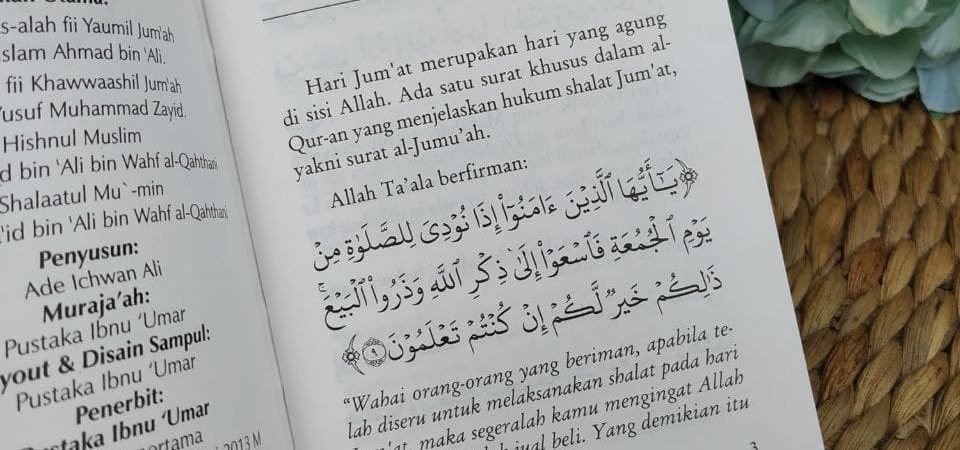 s-alah fii Yaumil Jum'ah
slam Ahmad bin 'Ali.
fii Khawwaashil Jum'ah
Yusuf Muhammad Zayid.
Hishnul Muslim
d bin 'Ali bin Wahf al-Qahthani
Shalaatul Mu`-min
'id bin 'Ali bin Wahf al-Qahthani
Penyusun:
Ade Ichwan Ali
Muraja'ah:
Pustaka Ibnu 'Umar
yout & Disain Sampul:
Pustaka Ibnu 'Umar
Penerbit:
Pustaka Ibnu 'Umar
pertama
2013 M
Hari Jum'at merupakan hari yang agung
di sisi Allah. Ada satu surat khusus dalam al-
Qur-an yang menjelaskan hukum shalat Jum'at,
yakni surat al-Jumu'ah.
Allah Ta'ala berfirman:
﴿ يَـٰٓأَيُّهَا ٱلَّذِينَ ءَامَنُوٓا۟ إِذَا نُودِىَ لِلصَّلَوٰةِ مِن
يَوْمِ ٱلْجُمُعَةِ فَٱسْعَوْا۟ إِلَىٰ ذِكْرِ ٱللَّهِ وَذَرُوا۟ ٱلْبَيْعَ ۚ
ذَٰلِكُمْ خَيْرٌ لَّكُمْ إِن كُنتُمْ تَعْلَمُونَ ٩ ﴾
"Wahai orang-orang yang beriman, apabila te-
lah diseru untuk melaksanakan shalat pada hari
m'at, maka segeralah kamu mengingat Allah
jual beli. Yang demikian itu
3